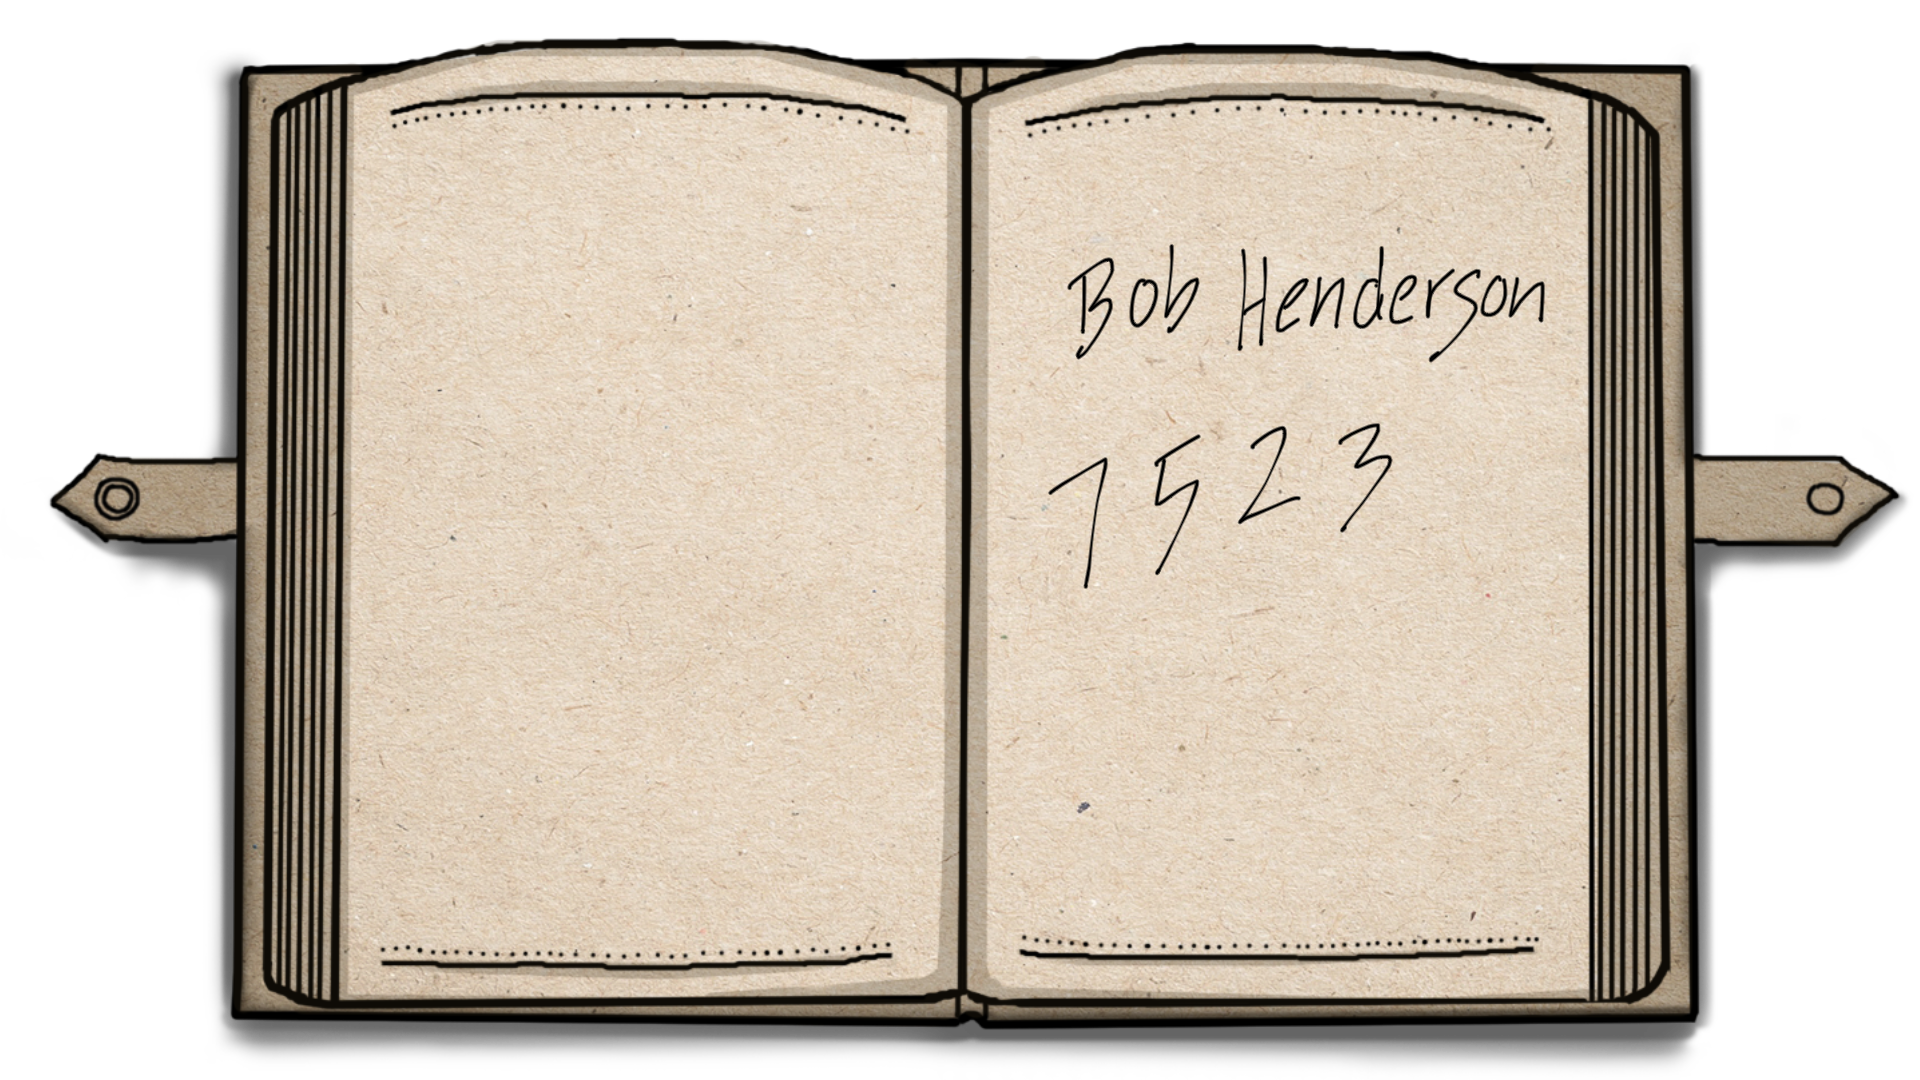 Bob Henderson
7523